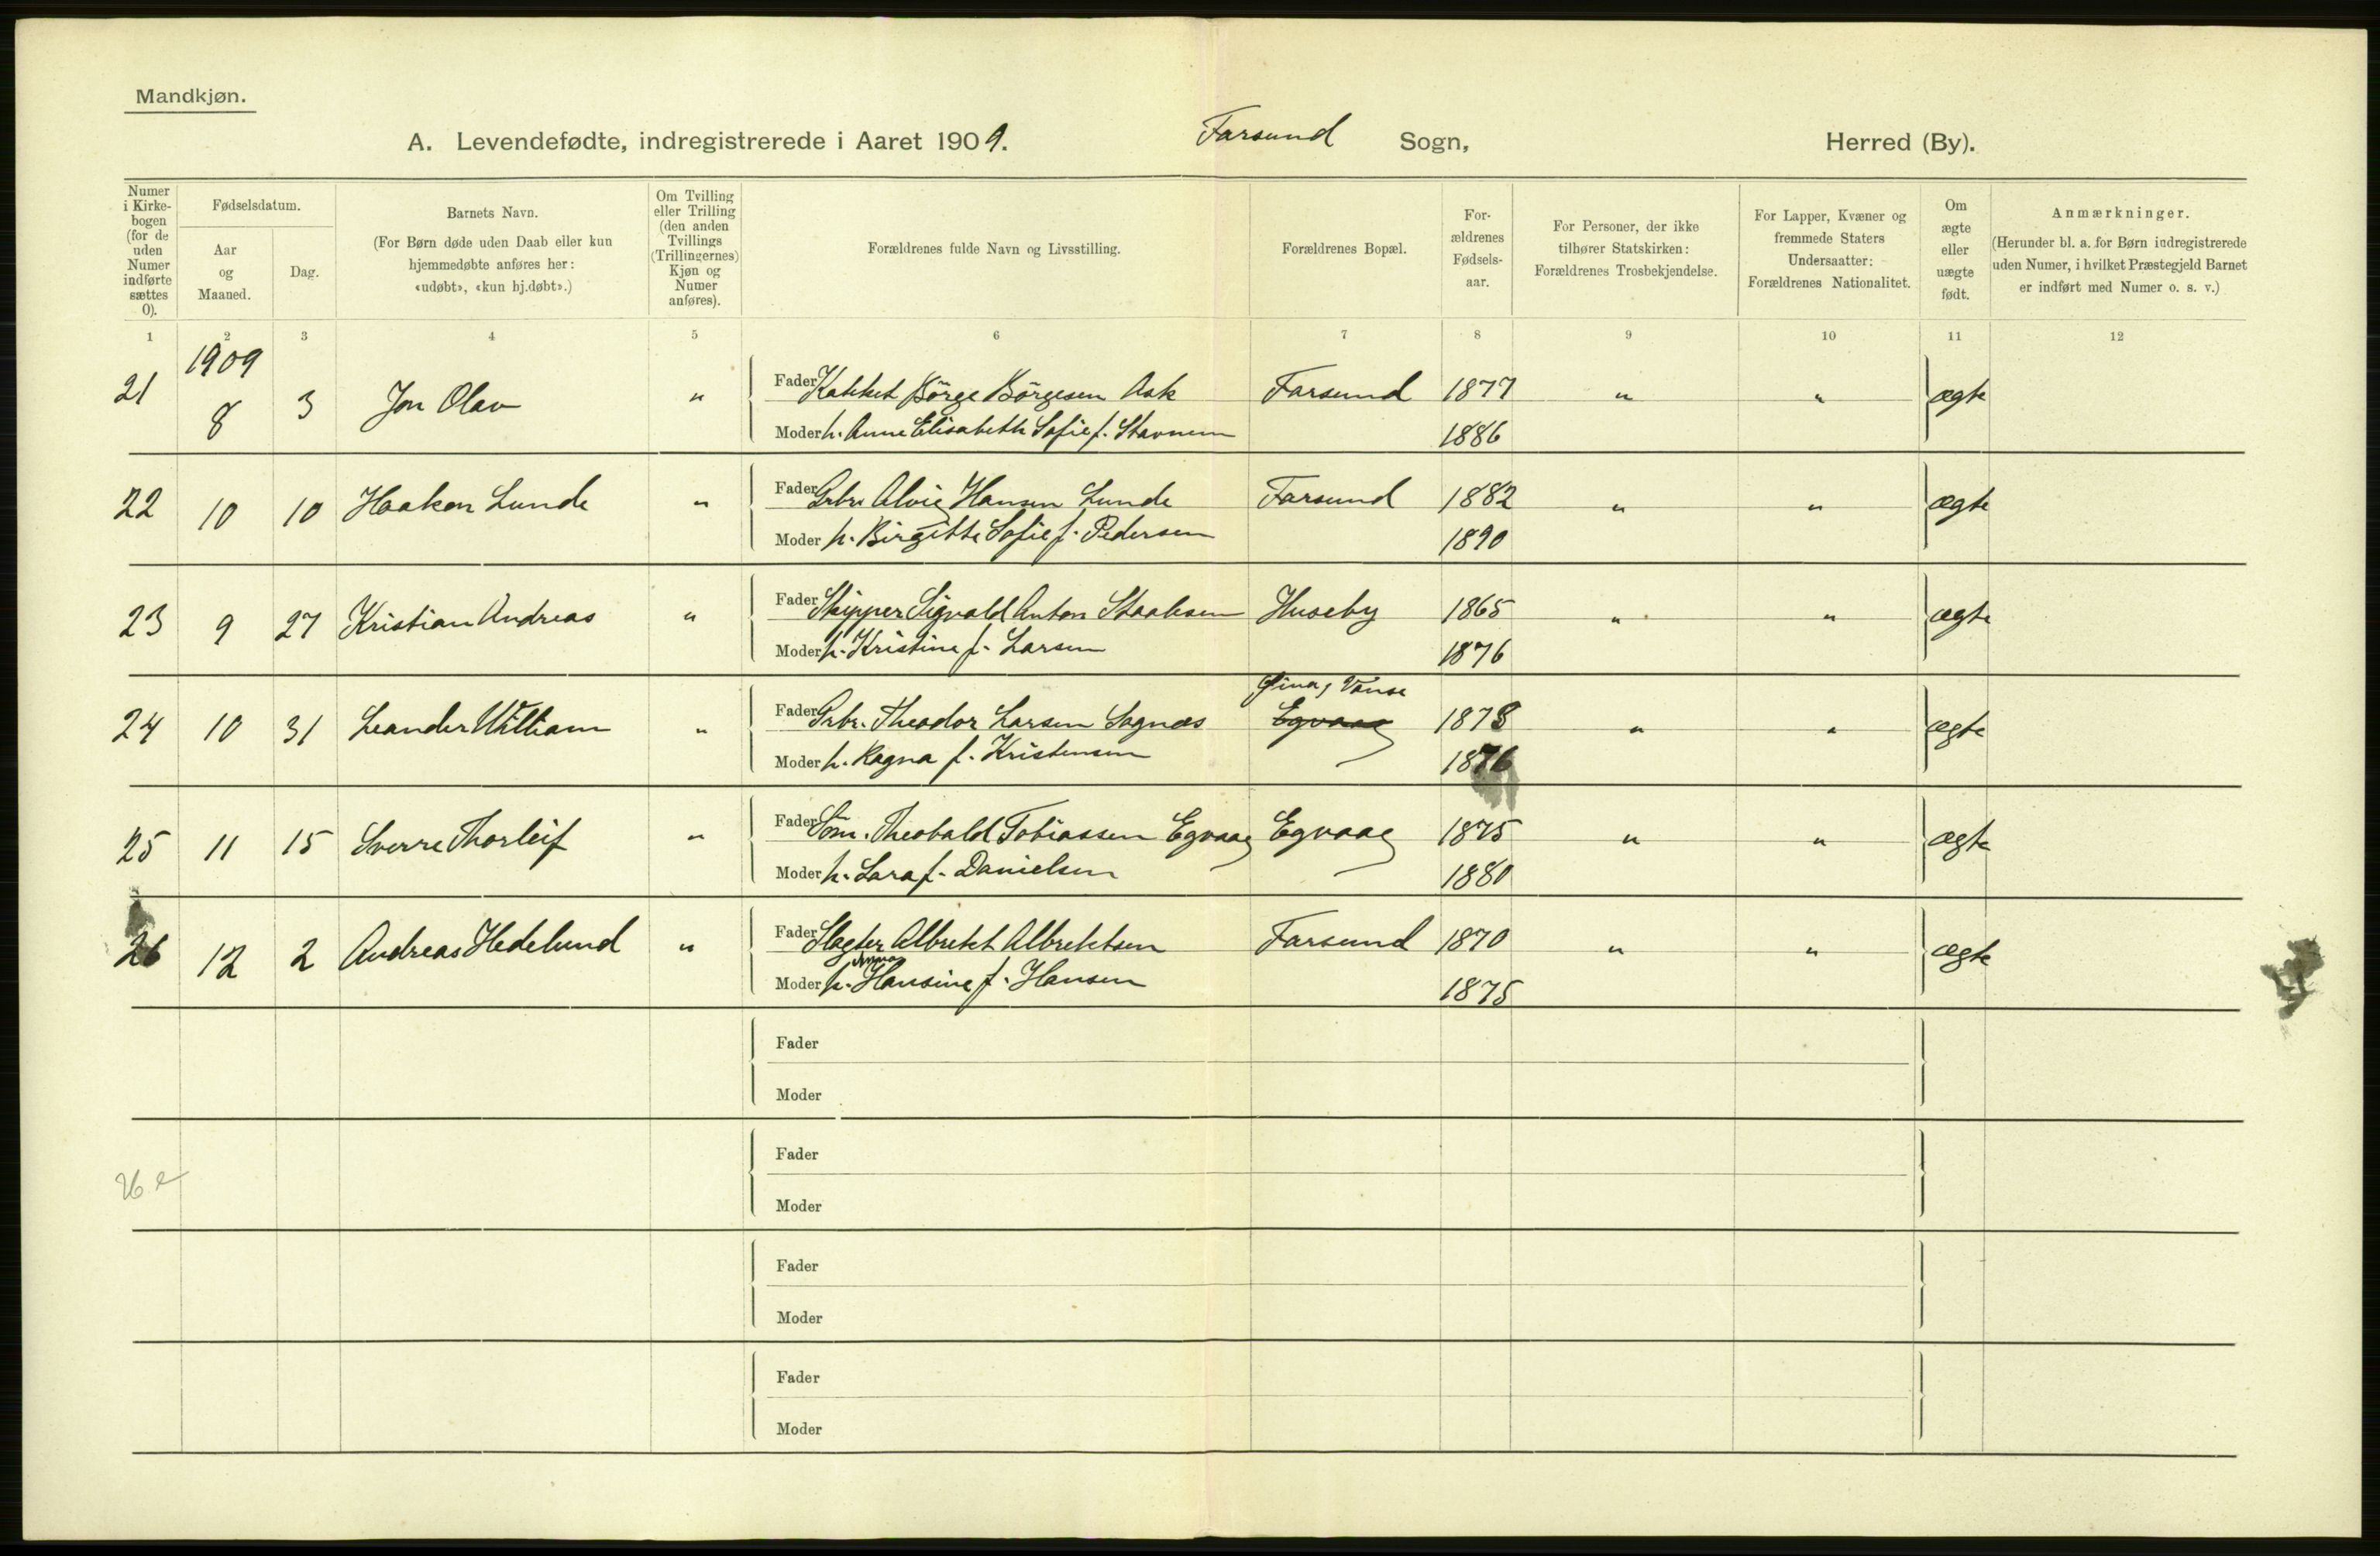 Mandkjøn.
A. Levendefødte, indregistrerede i Aaret 1909. Farsund Sogn, Herred (By).
Numer i Kirkebogen (for de uden Numer indførte sættes 0).
Fødselsdatum.
Aar og Maaned.
Dag.
Barnets Navn.
(For Børn døde uden Daab eller kun hjemmedøbte anføres her: «udøbt», «kun hj.døbt».)
Om Tvilling eller Trilling (den anden Tvillings (Trillingernes) Kjøn og Numer anføres).
Forældrenes fulde Navn og Livsstilling.
Forældrenes Bopæl.
For-ældrenes Fødsels-aar.
For Personer, der ikke tilhører Statskirken: Forældrenes Trosbekjendelse.
For Lapper, Kvæner og fremmede Staters Undersaatter: Forældrenes Nationalitet.
Om ægte eller uægte født.
Anmærkninger.
(Herunder bl. a. for Børn indregistrerede uden Numer, i hvilket Præstegjeld Barnet er indført med Numer o. s. v.)
1 2 3 4 5 6 7 8 9 10 11 12
1909
21 8 3 Jon Olav " Fader Børge Børgesen Ask Farsund 1877 " " ægte
Moder h. Anne Elisabeth Sofie f. Stavnem 1886
22 10 10 Haakon Lunde " Fader Grbr. Alvig Hansen Lunde Farsund 1882 " " ægte
Moder h. Birgitte Sofie f. Pedersen 1890
23 9 27 Kristian Andreas " Fader Skipper Sigvald Anton Staalesen Huseby 1865 " " ægte
Moder h. Kristine f. Larsen 1876
Vanse
24 10 31 Leander William " Fader Grbr. Theodor Larsen Sognes Egvaag 1878 " " ægte
Moder h. Ragna f. Kristensen 1876
25 11 15 Sverre Thorleif " Fader Söm. Theobald Tobiassen Egvaag Egvaag 1875 " " ægte
Moder h. Lara f. Danielsen 1880
26 12 2 Andreas Hedelund " Fader Slagter Albrekt Albrektsen Farsund 1870 " " ægte
Anna
Moder h. Hansine f. Hansen 1875
Fader
Moder
26
Fader
Moder
Fader
Moder
Fader
Moder